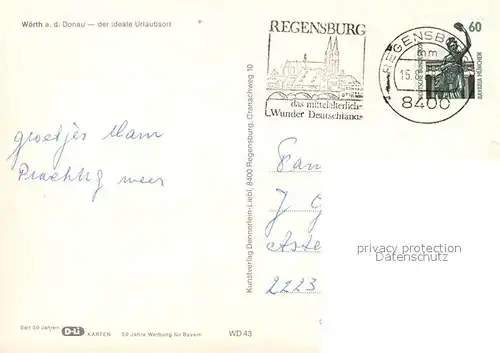 Wörth a. d. Donau — der ideale Urlaubsort
REGENSBURG
das mittelalterliche
Wunder Deutschlands
REGENSBURG
mm
15.8
8400
60
BAVARIA MÜNCHEN
groetjes Mam
Prachtig weer
Fam
J G
Aste
2223
privacy protection
Kunstverlag Dennerlein-Liebl, 8400 Regensburg, Cranachweg 10
Seit 50 Jahren D-Li KARTEN 50 Jahre Werbung für Bayern WD 43